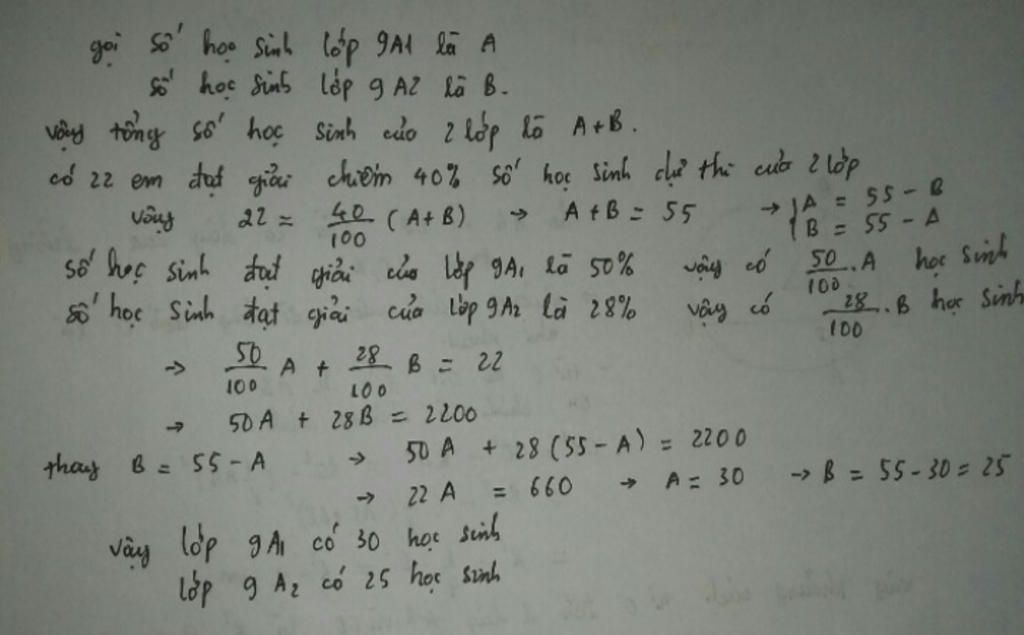 gọi số học sinh lớp 9A1 là A
số học sinh lớp 9A2 là B.
vậy tổng số học sinh của 2 lớp là A+B.
có 22 em đạt giải chiếm 40% số học sinh dự thi của 2 lớp
vậy 22 = 40/100 (A+B) → A+B = 55 → { A = 55 - B
B = 55 - A
số học sinh đạt giải của lớp 9A1 là 50% vậy có 50/100 . A học sinh
số học sinh đạt giải của lớp 9A2 là 28% vậy có 28/100 . B học sinh
→ 50/100 A + 28/100 B = 22
→ 50A + 28B = 2200
thay B = 55 - A → 50A + 28(55-A) = 2200
→ 22A = 660 → A = 30 → B = 55-30 = 25
vậy lớp 9A1 có 30 học sinh
lớp 9A2 có 25 học sinh